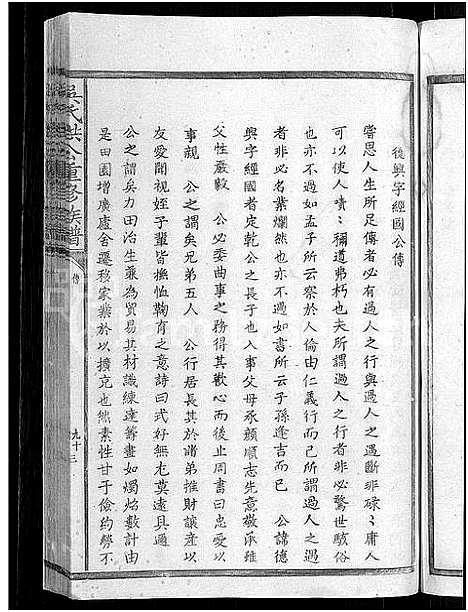 後興字經國公傳
嘗思人生所足傳者必有過人之行與過人之遇斷非碌〻庸人
可以使人嘖〻稱道弗朽也夫所謂過人之行者非必驚世駭俗
亦不過如孟子所云察於人倫由仁義行而已所謂過人之遇
者非必名業爛然也亦不過如書所云子孫逢吉而已 公諱德
興字經國者定乾公之長子也入事父母承顏順志先意敬承雖
父性嚴毅 公必委曲事之務得其歡心而後止周書曰忠愛以
事親 公之謂矣兄弟五人 公行居長其於諸弟推財讓產以
友愛聞視姪子輩皆撫恤鞠育之意詩曰式好無尤莫遠具邇
公之謂矣力田治生兼為貿易其材識練達籌畫如燭炤數計由
是田園增廣廬舍遷移家業於以擴充也然素性甘于儉約勞不
吳氏洪公重修族譜
傳
九十三